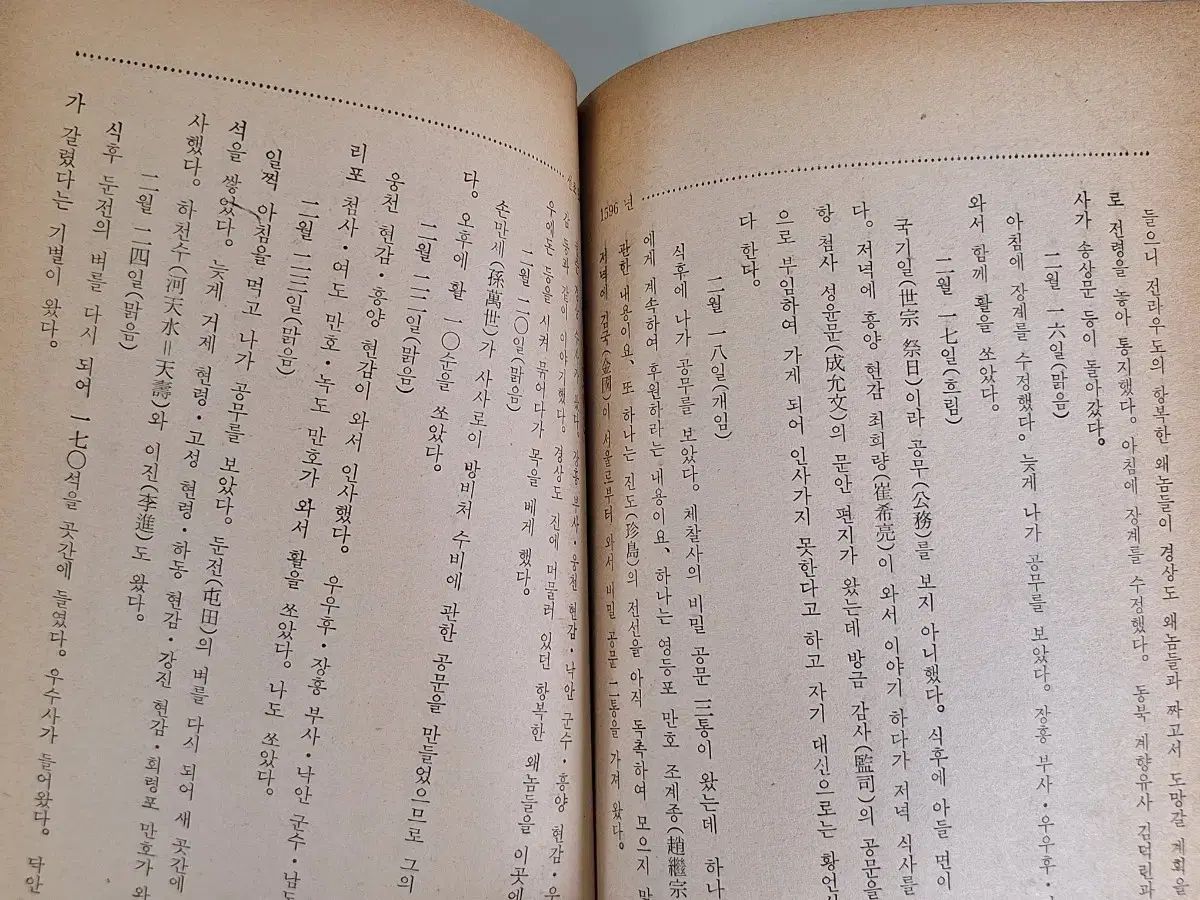 들으니 전라우도의 항복한 왜놈들이 경상도 왜놈들과 짜고서 도망갈 계획을
로 전령을 놓아 통지했다. 아침에 장계를 수정했다. 동북 계향유사 김덕린과
사가 송상문 등이 돌아갔다.
二월 一六일(맑음)
아침에 장계를 수정했다. 늦게 나가 공무를 보았다. 장흥 부사·우우후·
와서 함께 활을 쏘았다.
二월 一七일(흐림)
국기일(世宗 祭日)이라 공무(公務)를 보지 아니했다. 식후에 아들 면이
다. 저녁에 흥양 현감 최희량(崔希亮)이 와서 이야기 하다가 저녁 식사를
항 첨사 성윤문(成允文)의 문안 편지가 왔는데 방금 감사(監司)의 공문을
으로 부임하여 가게 되어 인사가지 못한다고 하고 자기 대신으로는 황언
다 한다.
二월 一八일(개임)
식후에 나가 공무를 보았다. 체찰사의 비밀 공문 三통이 왔는데 하나
에게 계속하여 후원하라는 내용이요, 하나는 영등포 만호 조계종(趙繼宗
관한 내용이요, 또 하나는 진도(珍島)의 전선을 아직 독촉하여 모으지 말
저녁에 김국(金國)이 서울로부터 와서 비밀 공문 二통을 가져 왔다.
1596 년
부사·웅천 현감·낙안 군수·흥양 현감·우
우에돈 등을 시켜 묶어다가 목을 베게 했다.
같이 이야기했다. 경상도 진에 머물러 있던 항복한 왜놈들을 이곳에
二월 二〇일(맑음)
손만세(孫萬世)가 사사로이 방비처 수비에 관한 공문을 만들었으므로 그의
다. 오후에 활 一〇순을 쏘았다.
二월 二二일(맑음)
웅천 현감·흥양 현감이 와서 인사했다. 우우후·장흥 부사·낙안 군수·남도
리포 첨사·여도 만호·녹도 만호가 와서 활을 쏘았다. 나도 쏘았다.
二월 二三일(맑음)
일찍 아침을 먹고 나가 공무를 보았다. 둔전(屯田)의 벼를 다시 되어 새 곳간에
석을 쌓았다. 늦게 거제 현령·고성 현령·하동 현감·강진 현감·회령포 만호가 와
사했다. 하천수(河天水=天壽)와 이진(李進)도 왔다.
二월 二四일(맑음)
식후 둔전의 벼를 다시 되어 一七〇석을 곳간에 들였다. 우수사가 들어왔다. 낙안
가 갈렸다는 기별이 왔다.